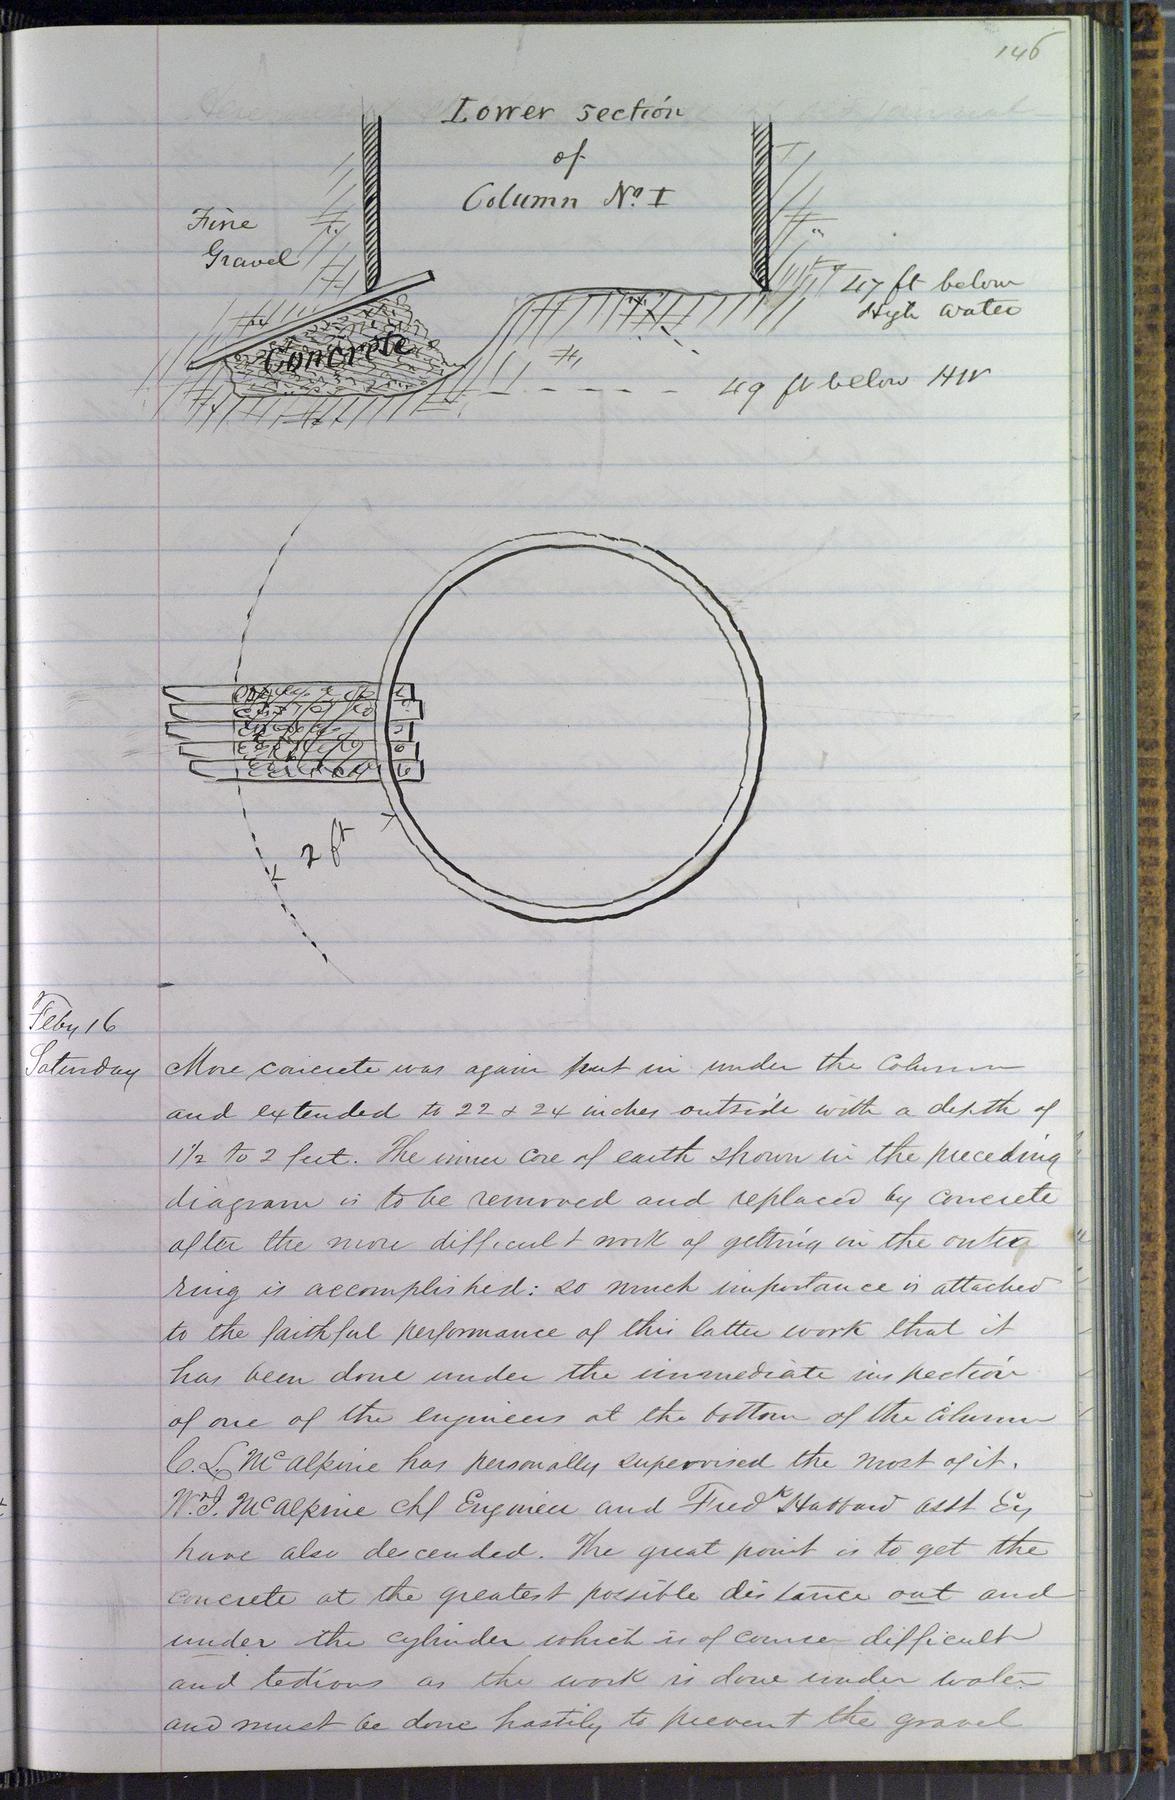 146
Lower section
of
Column No. I
Fine
Gravel
47 ft below
High water
Concrete
49 ft below HW
2 ft
Feby 16
Saturday
More concrete was again put in under the Column
and extended to 22 & 24 inches outside with a depth of
1½ to 2 feet. The inner core of earth shown in the preceding
diagram is to be removed and replaced by concrete
after the more difficult work of getting in the outer
ring is accomplished: so much importance is attached
to the faithful performance of this latter work that it
has been done under the immediate inspection
of one of the engineers at the bottom of the Column
C. L. McAlpine has personally supervised the most of it.
Wm. J. McAlpine Chf Engineer and Fredk Hubbard asst Eng
have also descended. The great point is to get the
concrete at the greatest possible distance out and
under the cylinder which is of course difficult
and tedious as the work is done under water
and must be done hastily to prevent the gravel